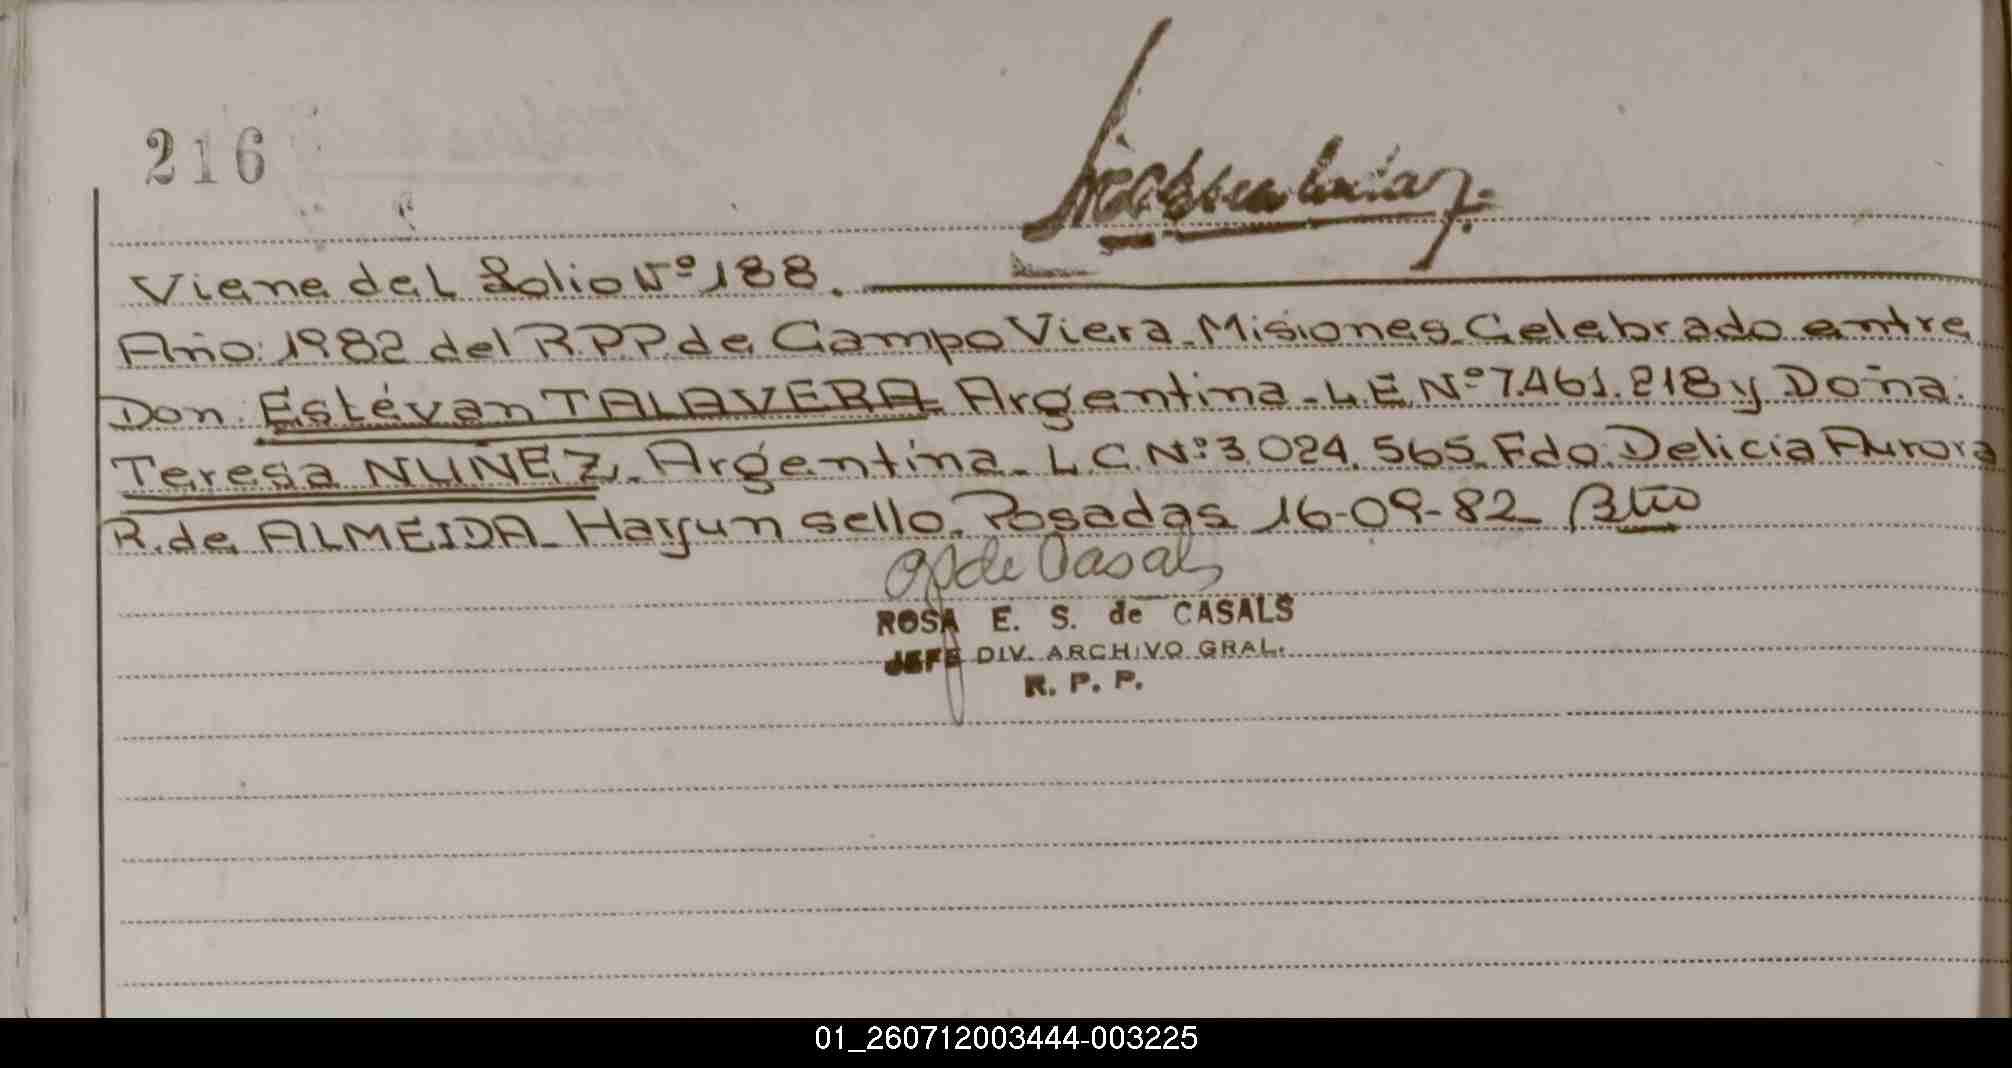 216
Viene del Folio Nº 188.
Año: 1982 del R.P.P. de Campo Viera - Misiones - Celebrado entre
Don: Estévan TALAVERA Argentina - L.E. Nº 7.461.218 y Doña:
Teresa NUÑEZ - Argentina - L.C. Nº: 3.024.565. Fdo: Delicia Aurora
R. de ALMEIDA - Hay un sello. Posadas 16-09-82
de Casals
ROSA E. S. de CASALS
JEFE DIV. ARCHIVO GRAL.
R. P. P.
01_260712003444-003225